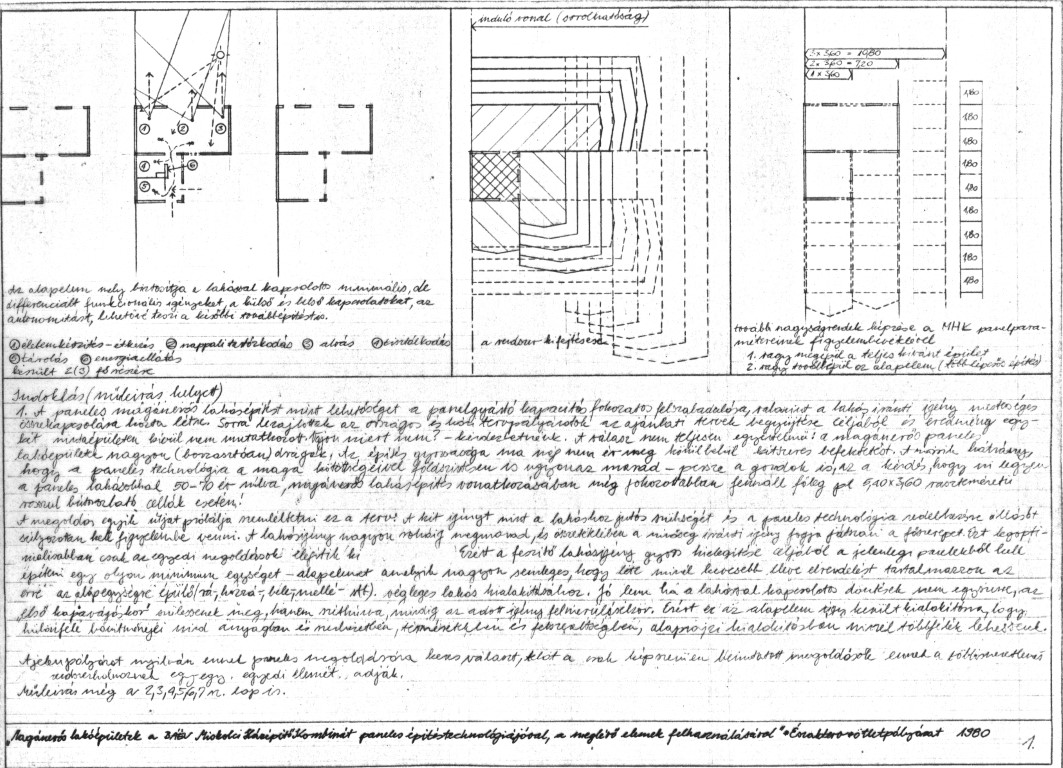 induló vonal (sorolhatóság)
3 x 3,60 = 10,80
2 x 3,60 = 7,20
1 x 3,60
1,80
1,80
1,80
1,80
1,80
1,80
1,80
1,80
1,80
1
2
3
4
5
6
Az alapelem mely biztosítja a lakással kapcsolatos minimális, de
differenciált funkcionális igényeket, a külső és belső kapcsolatokat, az
autonomitást, lehetővé teszi a későbbi továbbépítést is.
1 élelemkészítés - étkezés 2 nappali tartózkodás 3 alvás 4 tisztálkodás
5 tárolás 6 energiaellátás
készült 2(3) fő részére
a rendszer kifejtése
további nagyságrendek képzése a MHK panelpara-
métereinek figyelembevételével
1. vagy megépül a teljes kívánt épület
2. vagy továbbépül az alapelem (többlépcsős építés)
Indoklás (műleírás helyett)
1. A paneles magánerős lakásépítést mint lehetőséget a panelgyártó kapacitás fokozatos felszabadulása, valamint a lakás iránti igény mesterséges
összekapcsolása hozta létre. Sorra lezajlottak az országos és házi tervpályázatok az ajánlati tervek begyűjtése céljából és eredmény egy-
két mintaépületen kívül nem mutatkozott. Vajon miért nem? - kérdezhetnénk. A válasz nem teljesen egyértelmű: a magánerős paneles
lakóépületek nagyon (borzasztóan) drágák. Az építés gyorsasága ma még nem ér meg körülbelül kétszeres befektetést. A másik hátrány,
hogy a paneles technológia a maga kötöttségeivel földszintesen is ugyanaz marad - persze a gondok is, az a kérdés, hogy mi legyen
a paneles lakásokkal 50-70 év múlva, magánerős lakásépítés vonatkozásában még fokozottabban fennáll főleg pl 5,40 x 3,60 raszterméretű
rosszul bútorozható cellák esetén!
A megoldás egyik útját próbálja szemléltetni ez a terv! A két igényt mint a lakáshoz jutás szükségét és a paneles technológia rendelkezésre állását
súlyozottan kell figyelembe venni. A lakásigény nagyon sokáig megmarad, és összekötésben a minőség iránti igény fogja játszani a főszerepet. Ezt legopti-
málisabban csak az egyedi megoldások elégítik ki Ezért a feszítő lakásigény gyors kielégítése céljából a jelenlegi panelekből kell
építeni egy olyan minimum egységet - alapelemet amelyik nagyon semleges, hogy lőtte minél kevesebb illeve elrendelést tartalmazzon az
erre az alapegységre épülő (rá-, hozzá-, bele-, mellé- stb). végleges lakás kialakításához. Jó lenne ha a lakással kapcsolatos döntések nem egyszerre, az
„első kapavágáskor" születnének meg, hanem ritkítva, mindig az adott igény felmerülésekor. Ezért ez az alapelem úgy került kialakításra, hogy
különféle bővítményei mind anyagban és szerkezetben, térméretekben és felszereltségben, alaprajzi kialakításban minél többfélék lehessenek.
A jelen pályázat nyilván ennek paneles megoldására keres választ, tehát a csak képszerűen bemutatott megoldások ennek a
rendszerhalmaznak egy-egy egyedi elemét adják.
Műleírás még a 2,3,4,5,6,7 sz. lap is.
„Magánerős lakóépületek a BÁÉV Miskolci Házépítő Kombinát paneles építéstechnológiájával, a meglévő elemek felhasználásával" • Északterv ötletpályázat 1980
1.